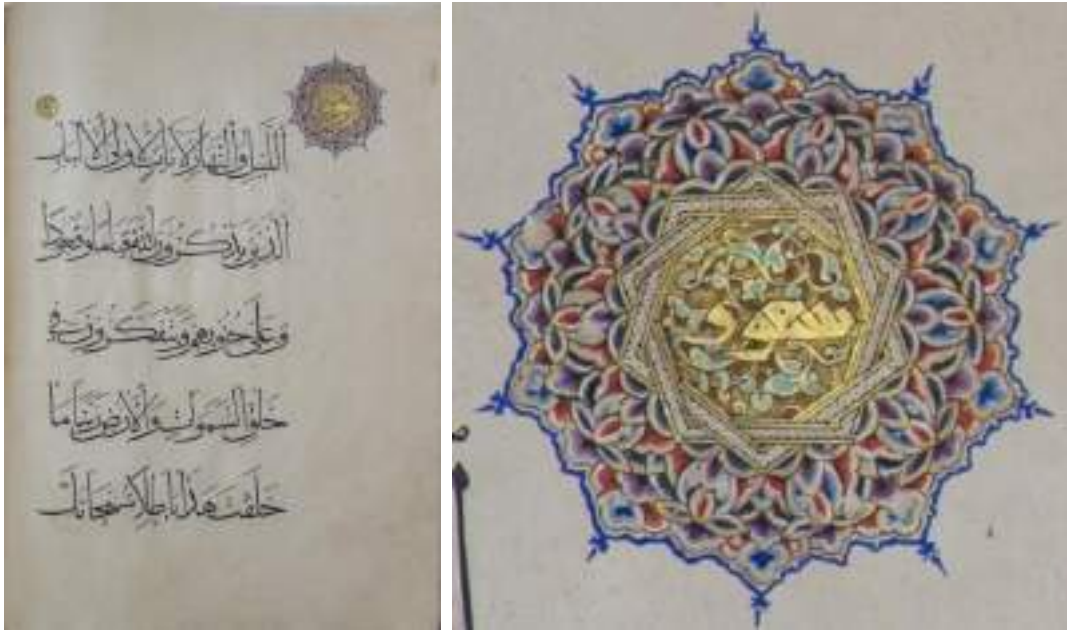 الليل والنهار لايات لاولى الالباب
الذين يذكرون الله قياما وقعودا
وعلى جنوبهم ويتفكرون في
خلق السموات والارض ربنا ما
خلقت هذا باطلا سبحانك